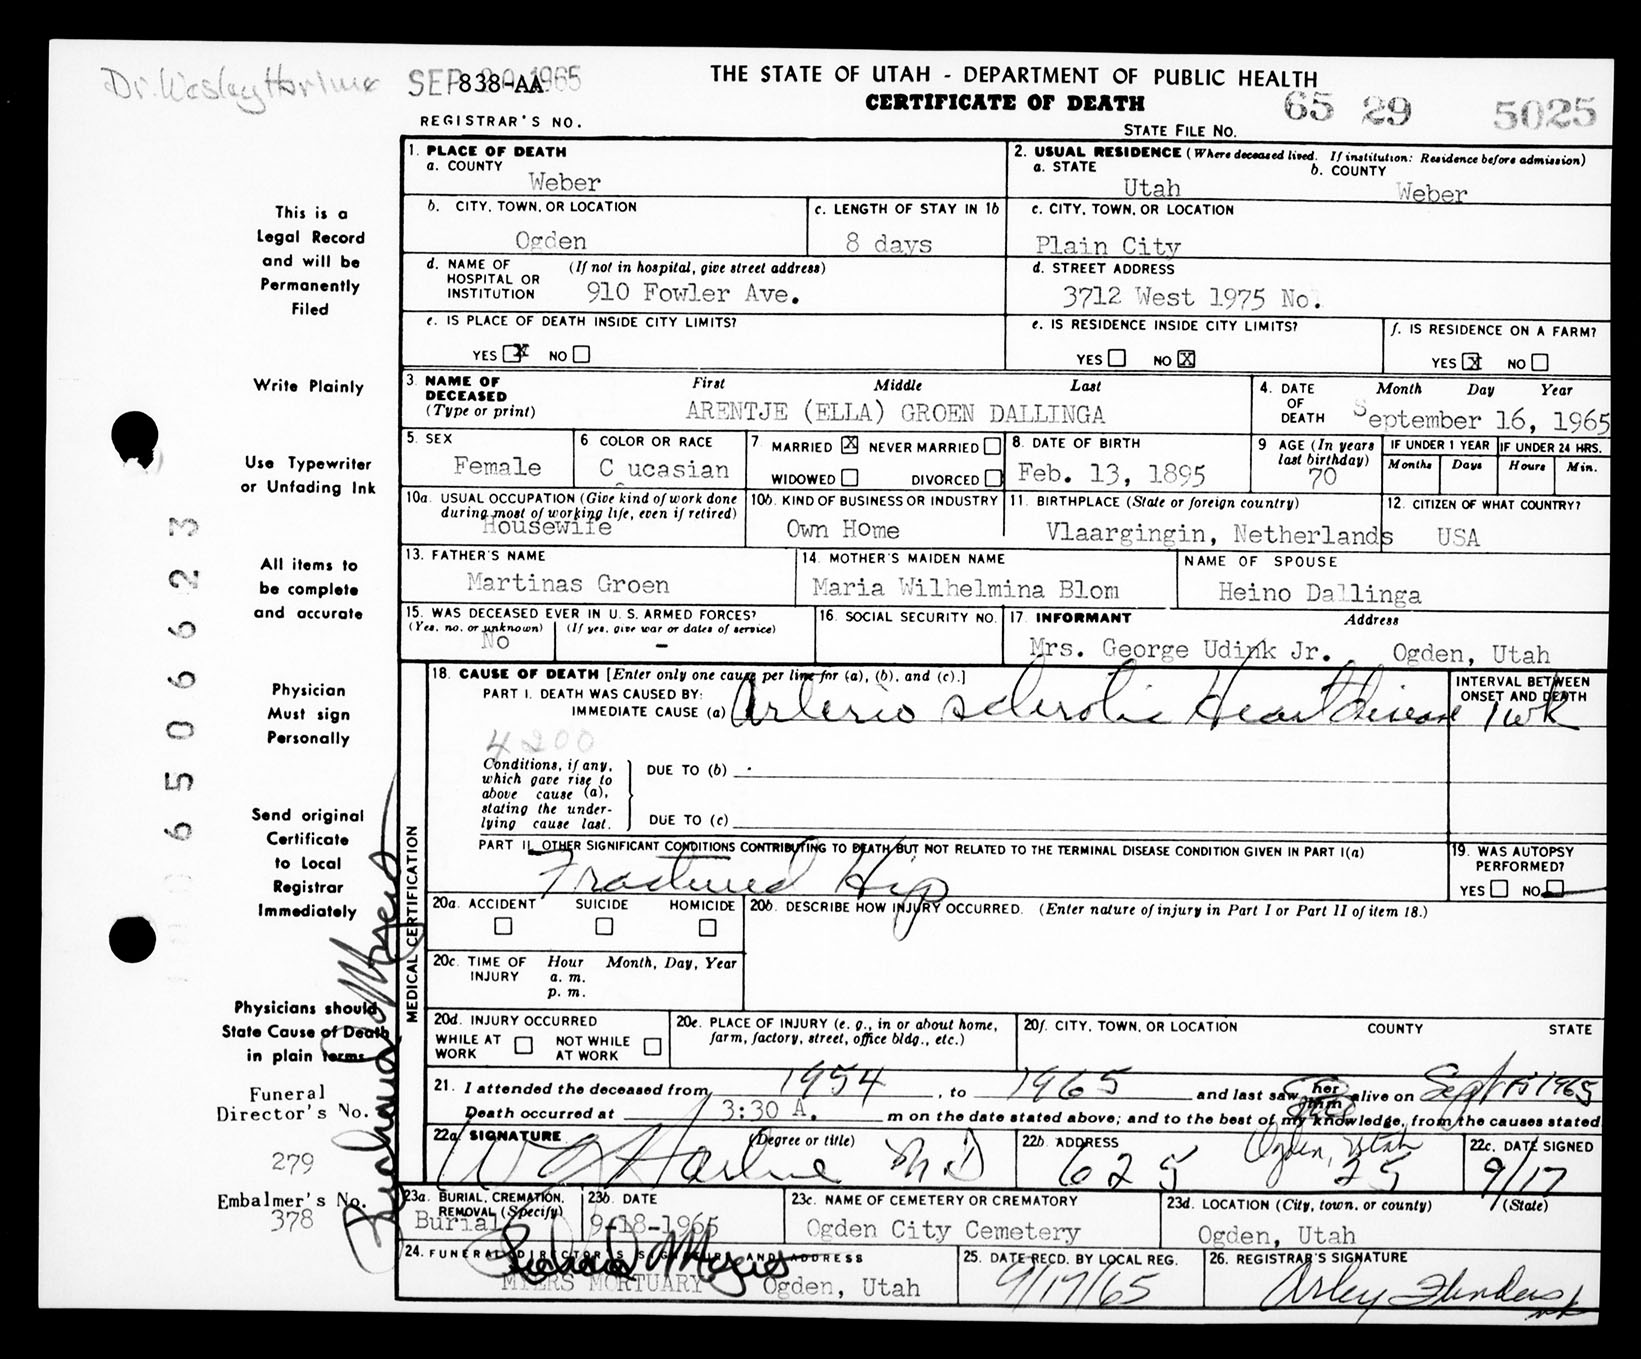 Dr. Wesley Harline
SEP 20 1965
838-AA
REGISTRAR'S NO.
THE STATE OF UTAH - DEPARTMENT OF PUBLIC HEALTH
CERTIFICATE OF DEATH
STATE FILE NO. 65 29 5025
This is a
Legal Record
and will be
Permanently
Filed
Write Plainly
Use Typewriter
or Unfading Ink
All items to
be complete
and accurate
Physician
Must sign
Personally
Send original
Certificate
to Local
Registrar
Immediately
Physicians should
State Cause of Death
in plain terms
Funeral
Director's No.
279
Embalmer's No.
378
6506623
1. PLACE OF DEATH
a. COUNTY
Weber
2. USUAL RESIDENCE (Where deceased lived. If institution: Residence before admission)
a. STATE
Utah
b. COUNTY
Weber
b. CITY, TOWN, OR LOCATION
Ogden
c. LENGTH OF STAY IN 1b
8 days
c. CITY, TOWN, OR LOCATION
Plain City
d. NAME OF HOSPITAL OR INSTITUTION
(If not in hospital, give street address)
910 Fowler Ave.
d. STREET ADDRESS
3712 West 1975 No.
e. IS PLACE OF DEATH INSIDE CITY LIMITS?
YES X NO
e. IS RESIDENCE INSIDE CITY LIMITS?
YES NO X
f. IS RESIDENCE ON A FARM?
YES X NO
3. NAME OF DECEASED
(Type or print)
First Middle Last
ARENTJE (ELLA) GROEN DALLINGA
4. DATE OF DEATH
Month Day Year
September 16, 1965
5. SEX
Female
6 COLOR OR RACE
C ucasian
7 MARRIED X NEVER MARRIED
WIDOWED DIVORCED
8. DATE OF BIRTH
Feb. 13, 1895
9 AGE (In years last birthday)
70
IF UNDER 1 YEAR
Months Days
IF UNDER 24 HRS.
Hours Min.
10a. USUAL OCCUPATION (Give kind of work done during most of working life, even if retired)
Housewife
10b. KIND OF BUSINESS OR INDUSTRY
Own Home
11. BIRTHPLACE (State or foreign country)
Vlaargingin, Netherlands
12. CITIZEN OF WHAT COUNTRY?
USA
13. FATHER'S NAME
Martinas Groen
14. MOTHER'S MAIDEN NAME
Maria Wilhelmina Blom
NAME OF SPOUSE
Heino Dallinga
15. WAS DECEASED EVER IN U. S. ARMED FORCES?
(Yes, no, or unknown) (If yes, give war or dates of service)
No -
16. SOCIAL SECURITY NO.
17. INFORMANT Address
Mrs. George Udink Jr. Ogden, Utah
MEDICAL CERTIFICATION
18. CAUSE OF DEATH [Enter only one cause per line for (a), (b), and (c).]
PART I. DEATH WAS CAUSED BY:
IMMEDIATE CAUSE (a) Arterio sclerotic Heart disease
INTERVAL BETWEEN ONSET AND DEATH
1 wk
4200
Conditions, if any, which gave rise to above cause (a), stating the underlying cause last.
DUE TO (b)
DUE TO (c)
PART II. OTHER SIGNIFICANT CONDITIONS CONTRIBUTING TO DEATH BUT NOT RELATED TO THE TERMINAL DISEASE CONDITION GIVEN IN PART I(a)
Fractured Hip
19. WAS AUTOPSY PERFORMED?
YES NO
20a. ACCIDENT SUICIDE HOMICIDE
20b. DESCRIBE HOW INJURY OCCURRED. (Enter nature of injury in Part I or Part II of item 18.)
20c. TIME OF INJURY
Hour Month, Day, Year
a. m.
p. m.
20d. INJURY OCCURRED
WHILE AT WORK NOT WHILE AT WORK
20e. PLACE OF INJURY (e. g., in or about home, farm, factory, street, office bldg., etc.)
20f. CITY, TOWN, OR LOCATION COUNTY STATE
21. I attended the deceased from 1954, to 1965 and last saw her him alive on Sept 15 1965
Death occurred at 3:30 A. m on the date stated above; and to the best of my knowledge, from the causes stated
22a. SIGNATURE (Degree or title)
W J Harline M.D
22b. ADDRESS
Ogden, Utah
625 25
22c. DATE SIGNED
9/17
23a. BURIAL, CREMATION, REMOVAL (Specify)
Burial
23b. DATE
9-18-1965
23c. NAME OF CEMETERY OR CREMATORY
Ogden City Cemetery
23d. LOCATION (City, town, or county) (State)
Ogden, Utah
24. FUNERAL DIRECTOR'S SIGNATURE AND ADDRESS
MYERS MORTUARY Ogden, Utah
25. DATE RECD. BY LOCAL REG.
9/17/65
26. REGISTRAR'S SIGNATURE
Arley Flinders